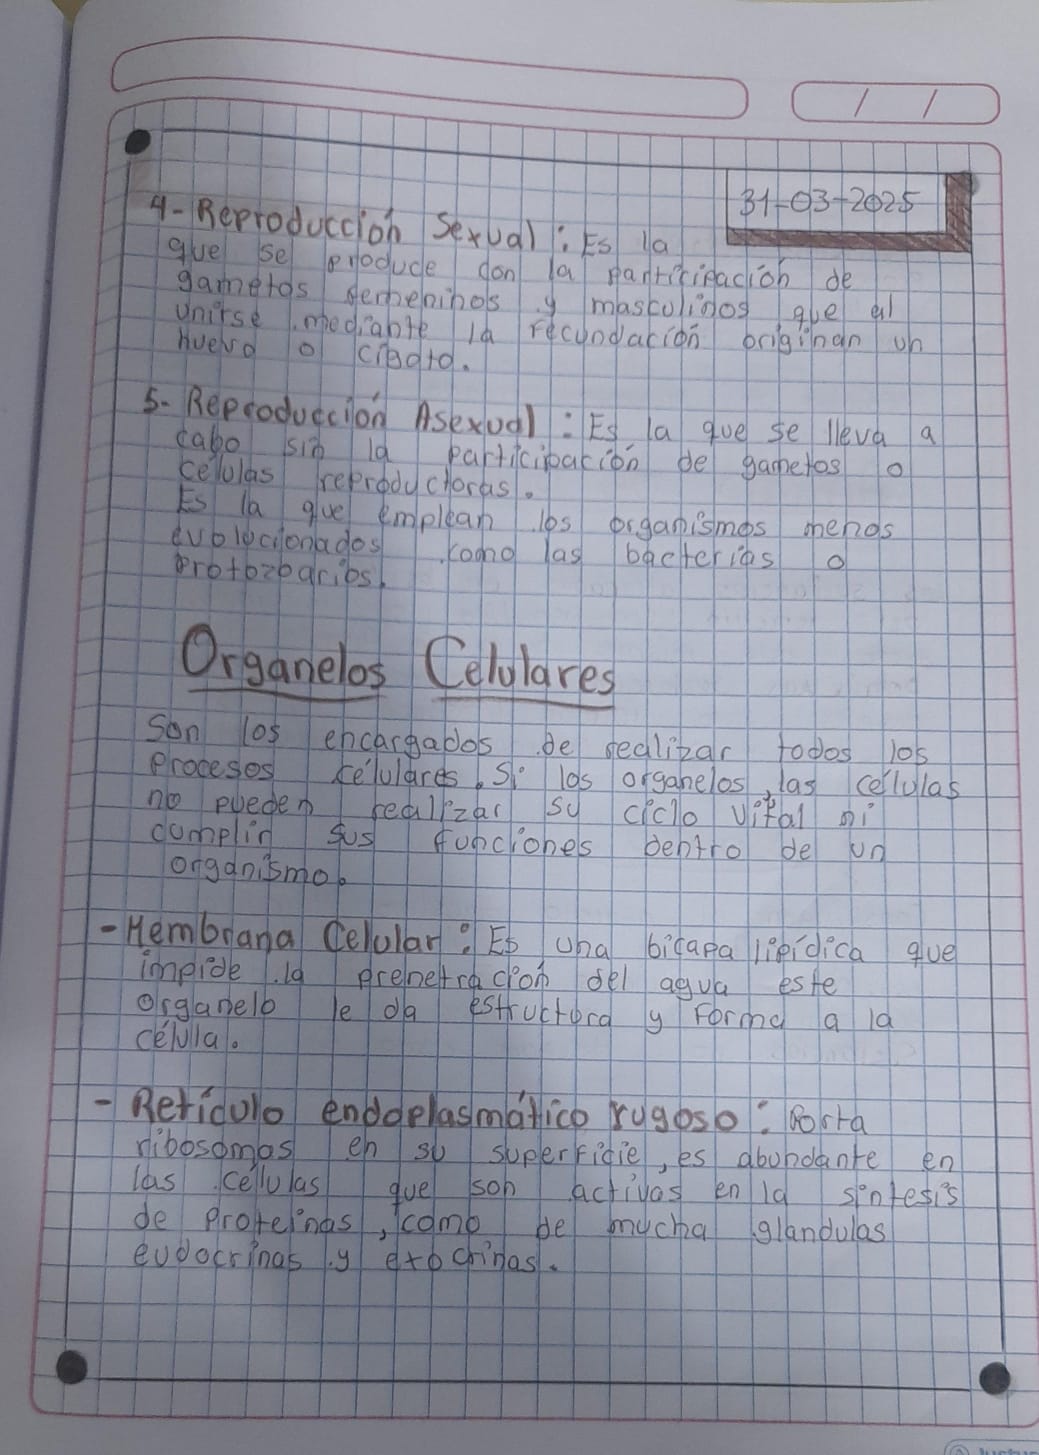 31-03-2025
4- Reproducción Sexual: Es la
que se produce con la participación de
gametos femeninos y masculinos que al
unirse mediante la fecundación originan un
huevo o cigoto.
5- Reproducción Asexual: Es la que se lleva a
cabo sin la participación de gametos o
células reproductoras.
Es la que emplean los organismos menos
evolucionados como las bacterias o
Protozoarios.
Organelos Celulares
Son los encargados de realizar todos los
Procesos celulares. Si los organelos, las celulas
no pueden realizar su ciclo vital ni
cumplir sus funciones dentro de un
organismo.
- Membrana Celular: Es una bicapa lipídica que
impide la prenetración del agua este
organelo le da estructura y Forma a la
célula.
- Retículo endoplasmático rugoso: Porta
ribosomas en su superficie, es abundante en
las celulas que son activas en la síntesis
de Proteinas, como de mucha glandulas
eudocrinas y exocrinas.